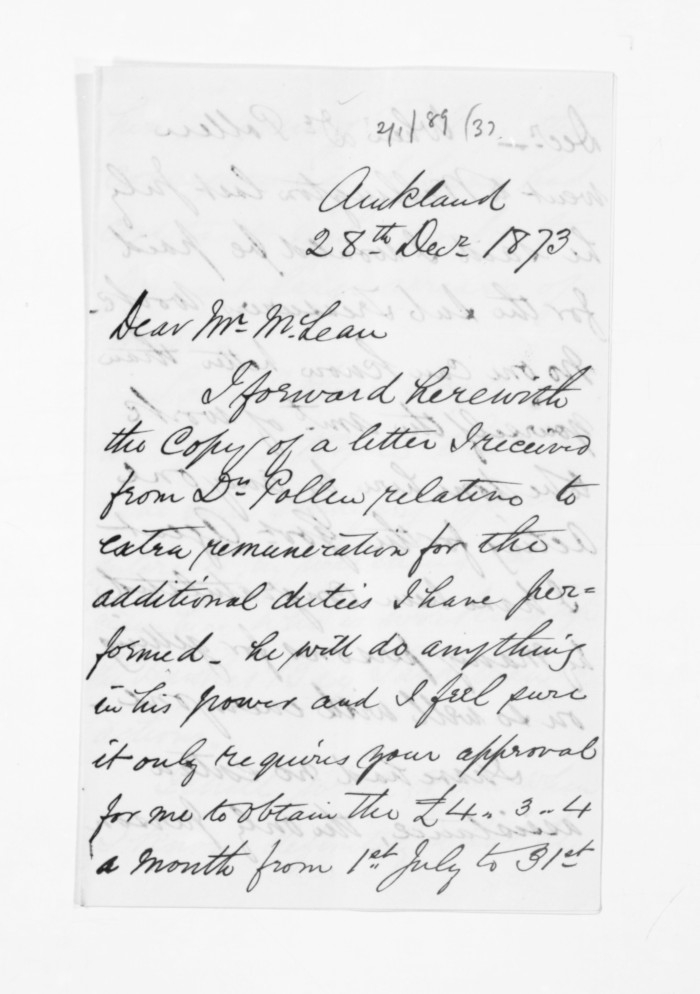 89 (3)
Auckland
28th Decr 1873
Dear Mr McLean
I forward herewith
the Copy of a letter I received
from Dr Pollen relative to
extra remuneration for the
additional duties I have per=
formed - he will do anything
in his power and I feel sure
it only requires your approval
for me to obtain the £4.. 3.. 4
a month from 1st July to 31st